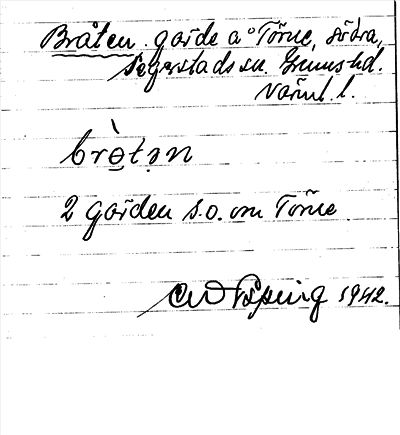 Bråten gårde a° Törne, södra,
Segerstads sn. Grums hd.
Värml. l.
brò̱tə̣n
2 gården s.o. om Törne.
1942.